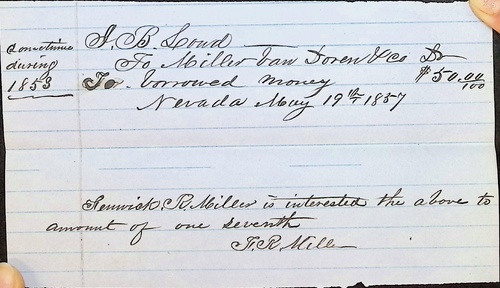 Sometime
during
1853
J. B. Loud
To Miller Van Doren & Co Dr
To borrowed money $50.00/100
Nevada May 19th 1857
Fenwick R. Miller is interested the above to
amount of one seventh
F. R. Miller